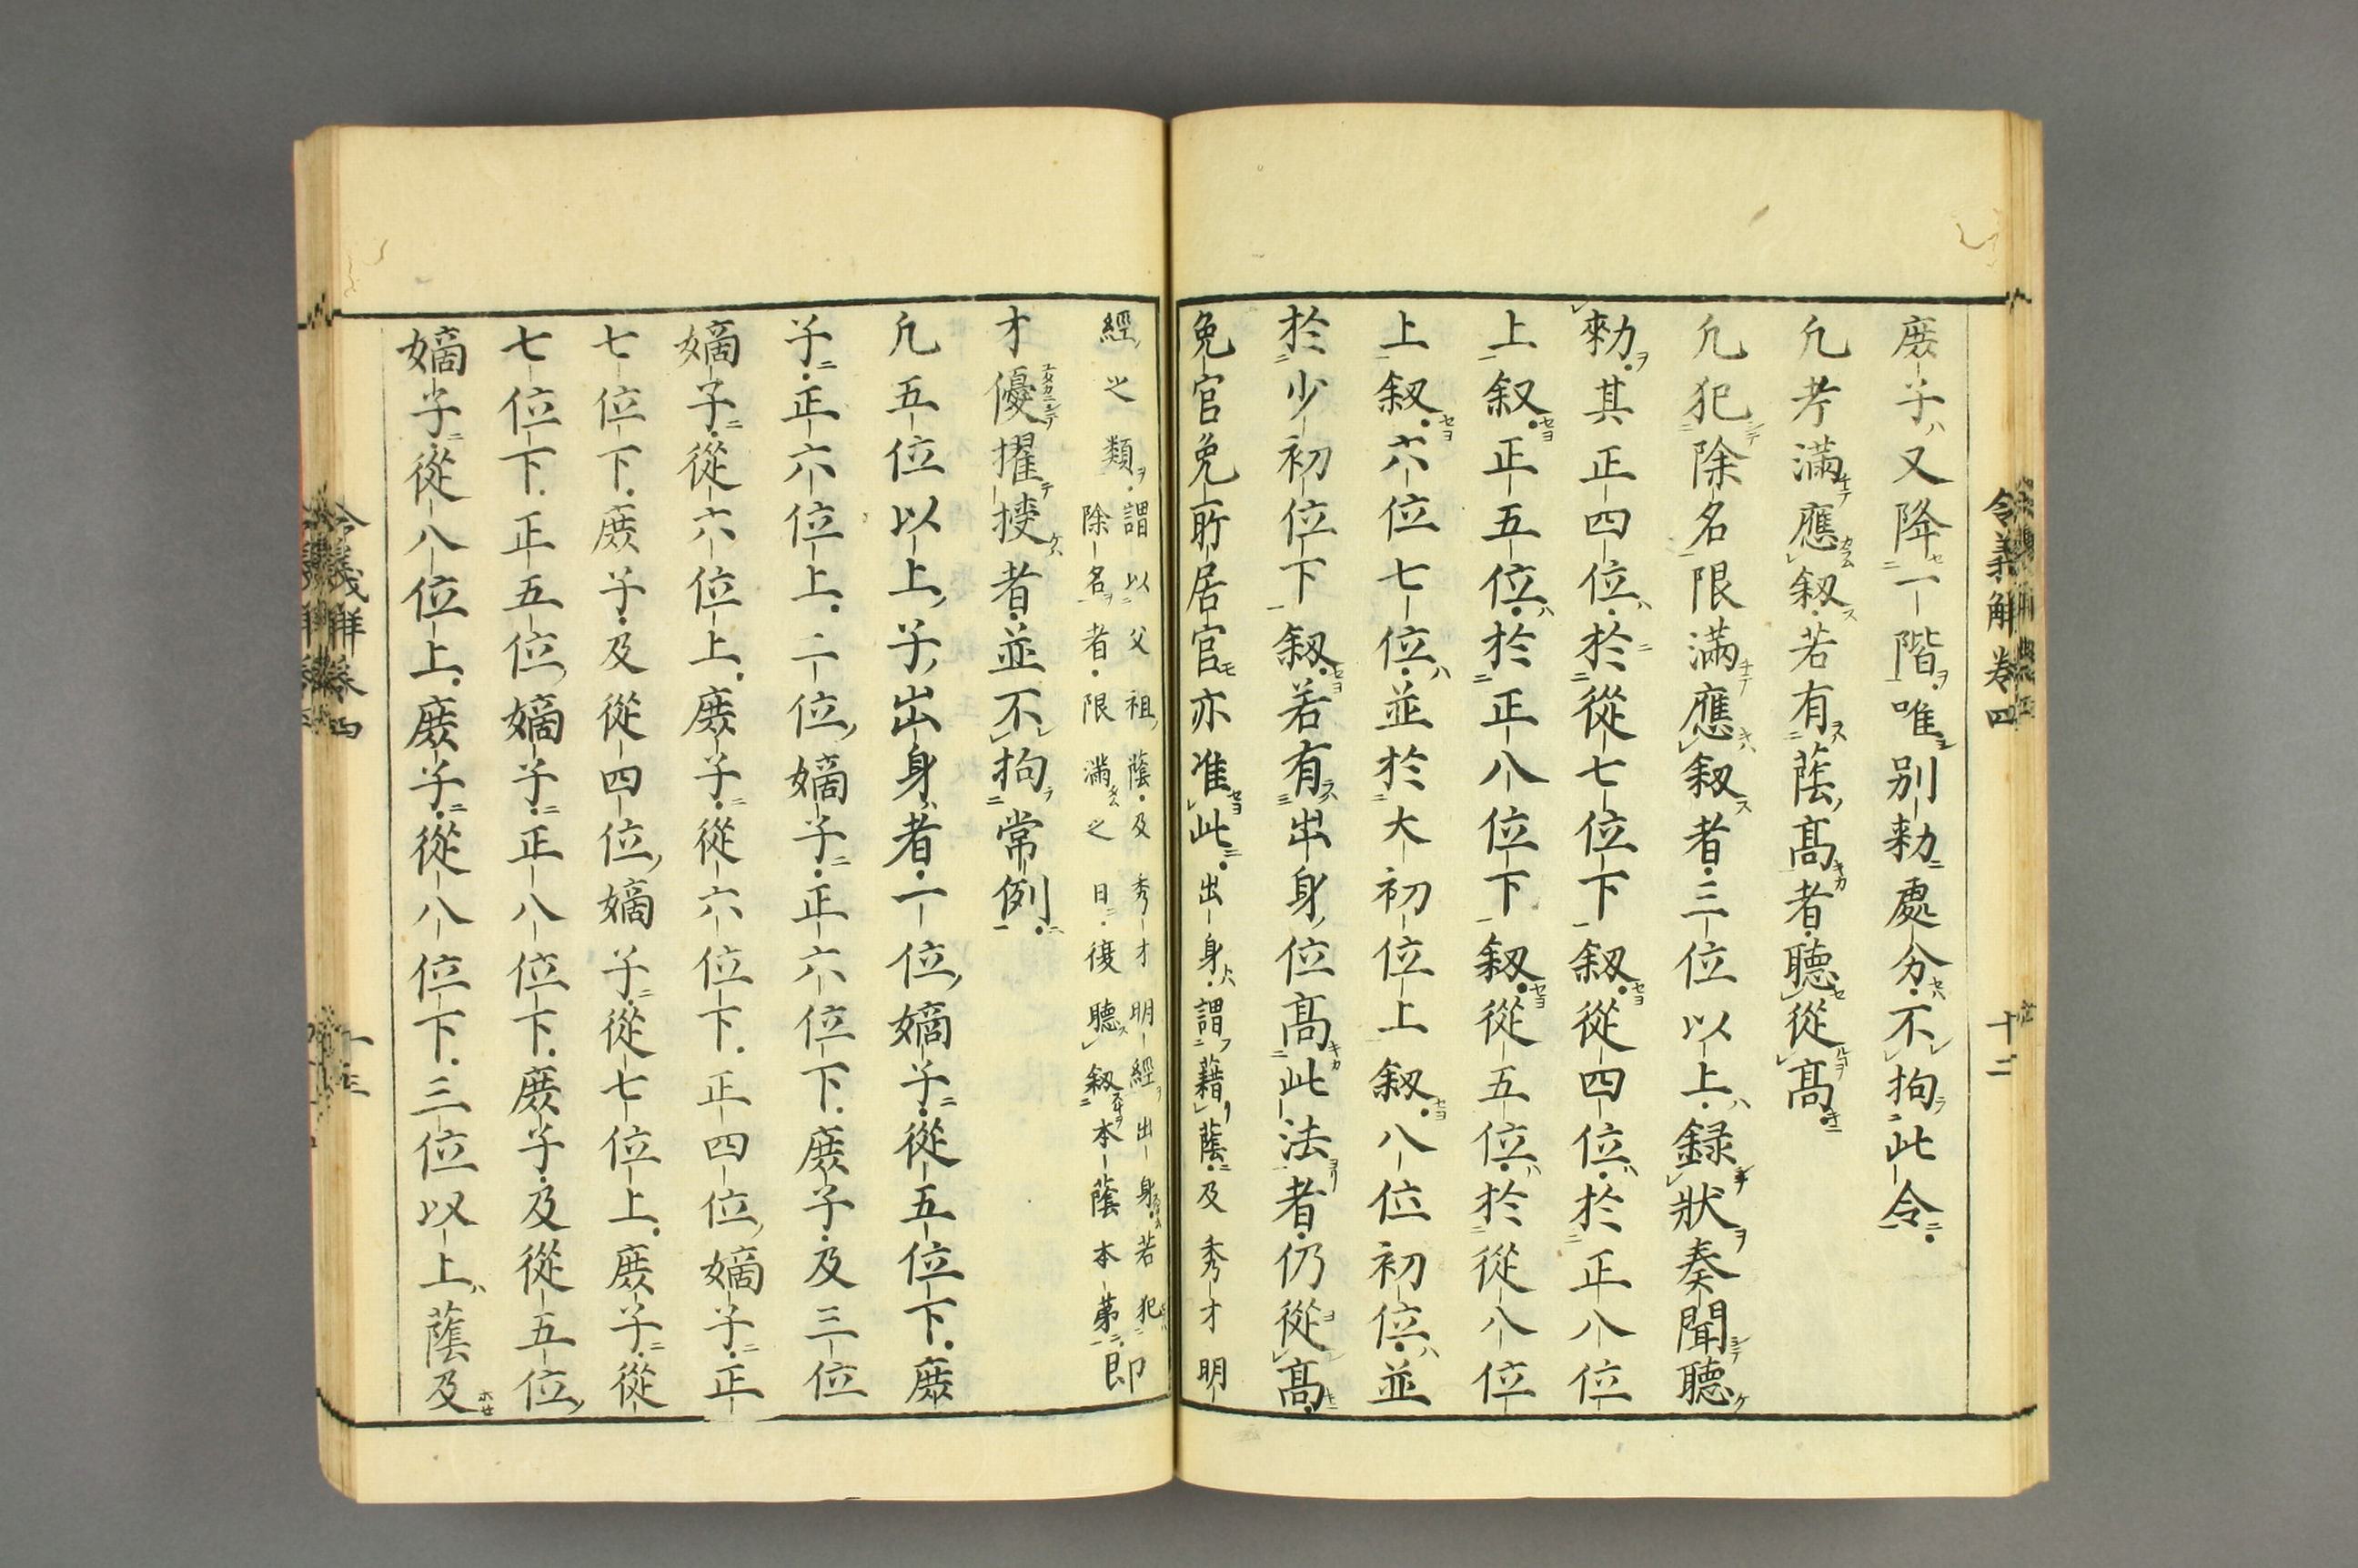 令義解卷四　十二
庶子又降一階唯別勅處分不拘此令
凡考滿應叙若有蔭髙者聽從髙
凡犯除名限滿應叙者三位以上録狀奏聞聽
勅其正四位於從七位下叙從四位於正八位
上叙正五位於正八位下叙從五位於從八位
上叙六位七位並於大初位上叙八位初位並
於少初位下叙若有出身位髙此法者仍從髙
免官免所居官亦准此出身謂藉蔭及秀才明
經之類謂以父祖蔭及秀才明經出身若犯
除名者限滿之日復聽叙本蔭本第即
才優擢授者並不拘常例
凡五位以上子出身者一位嫡子從五位下庶
子正六位上二位嫡子正六位下庶子及三位
嫡子從六位上庶子從六位下正四位嫡子正
七位下庶子及從四位嫡子從七位上庶子從
七位下正五位嫡子正八位下庶子及從五位
嫡子從八位上庶子從八位下三位以上蔭及
令義解卷四　十三